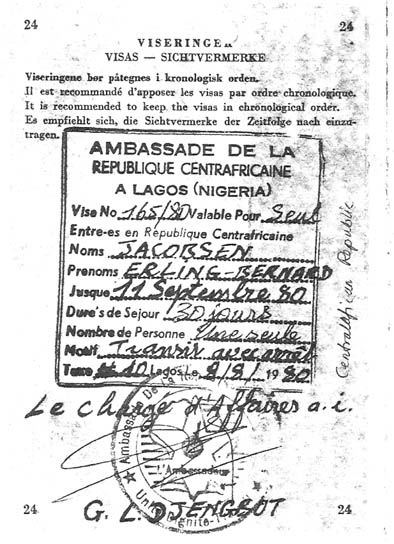 24 24
VISERINGER
VISAS — SICHTVERMERKE
Viseringene bør påtegnes i kronologisk orden.
Il est recommandé d'apposer les visas par ordre chronologique.
It is recommended to keep the visas in chronological order.
Es empfiehlt sich, die Sichtvermerke der Zeitfolge nach einzu-
tragen.
AMBASSADE DE LA
REPUBLIQUE CENTRAFRICAINE
A LAGOS (NIGERIA)
Visa No 165/80 Valable Pour Seul
Entre-es en République Centrafricaine
Noms JACOBSEN
Prenoms ERLING-BERNARD
Jusque 11 Septembre 80
Dure's de Sejour 30 jours
Nombre de Personne Une seule
Motif Transit avec arrêt
Taxe #10 Lagos Le 8/8/ 1980
Centralafrican Republic
Le Chargé d'Affaires a.i.
Ambassade De La
L'Ambassadeur
Unité Dignité
G. L. DJENGBOT
24 24